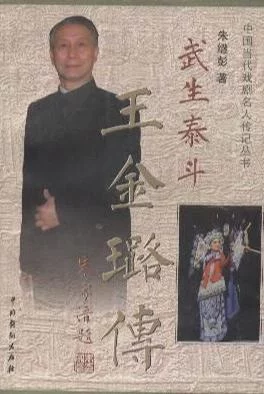 中国当代戏剧名人传记丛书
朱继彭 著
武生泰斗
王金璐傳
中国戏剧出版社